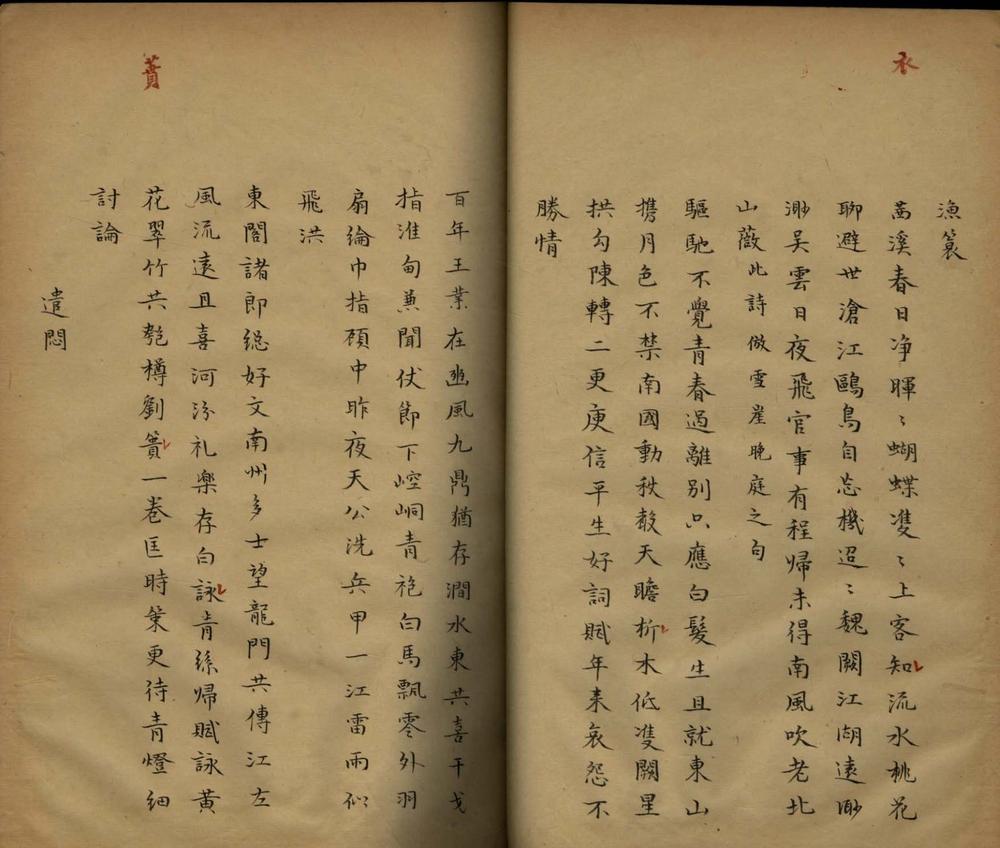 衣
漁蓑
茜溪春日净暉〻蝴蝶雙〻上客知流水桃花
聊避世滄江鷗鳥自忘機迢〻魏闕江湖遠渺
渺吴雲日夜飛官事有程帰未得南風吹老北
山薇此詩倣雪崖晚庭之句
驅馳不覺青春過離別只應白髮生且就東山
携月色不禁南國動秋聲天瞻析木低雙闕星
拱勾陳轉二更庾信平生好詞賦年来哀怨不
勝情
蕢
百年王業在豳風九鼎猶存澗水東共喜干戈
指淮甸兼聞伏節下崆峒青袍白馬飄零外羽
扇綸巾指顧中昨夜天公洗兵甲一江雷雨似
飛洪
東閣諸郎總好文南州多士望龍門共傳江左
風流遠且喜河汾礼樂存白詠肯孫帰賦詠黄
花翠竹共匏樽劉蕢一巻匡時策更待青燈細
討論
遣悶